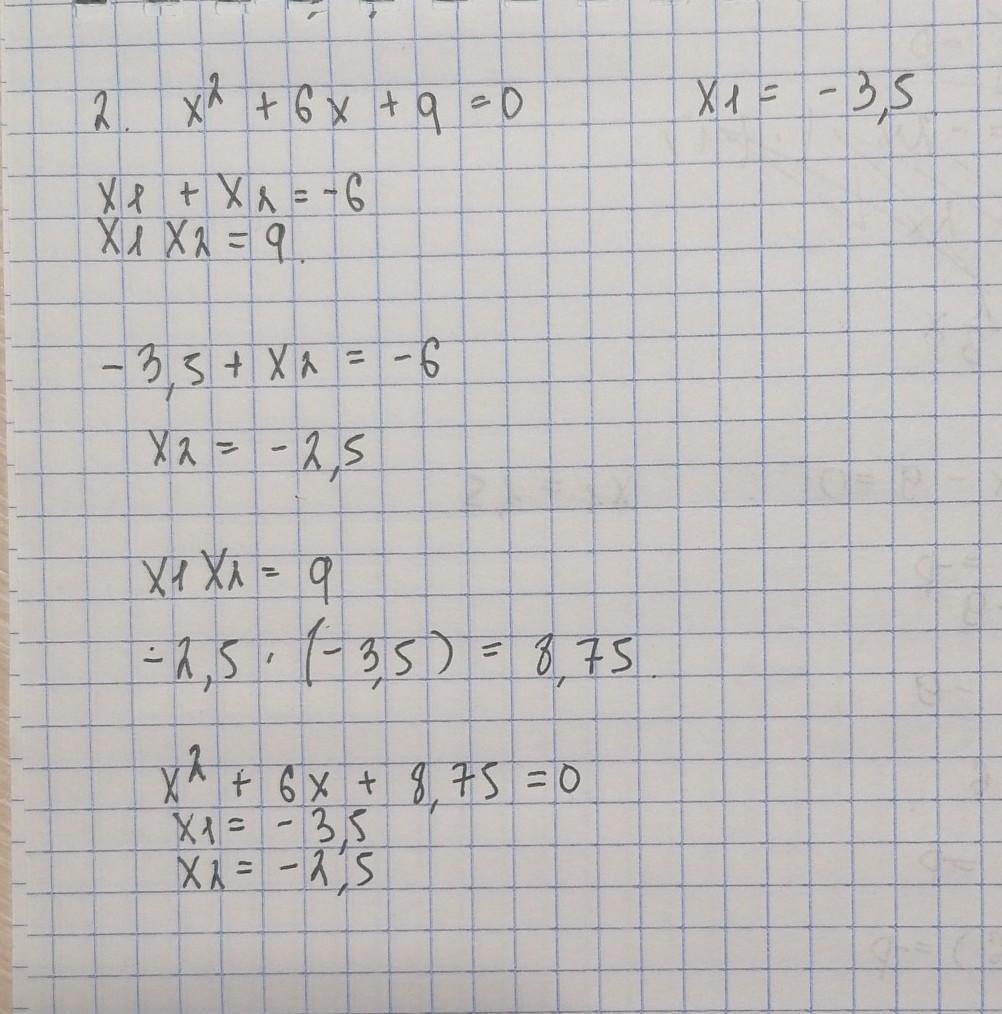 2. x² + 6x + 9 = 0 x1 = -3,5
x1 + x2 = -6
x1 x2 = 9.
-3,5 + x2 = -6
x2 = -2,5
x1 x2 = 9
-2,5 · (-3,5) = 8,75.
x² + 6x + 8,75 = 0
x1 = -3,5
x2 = -2,5